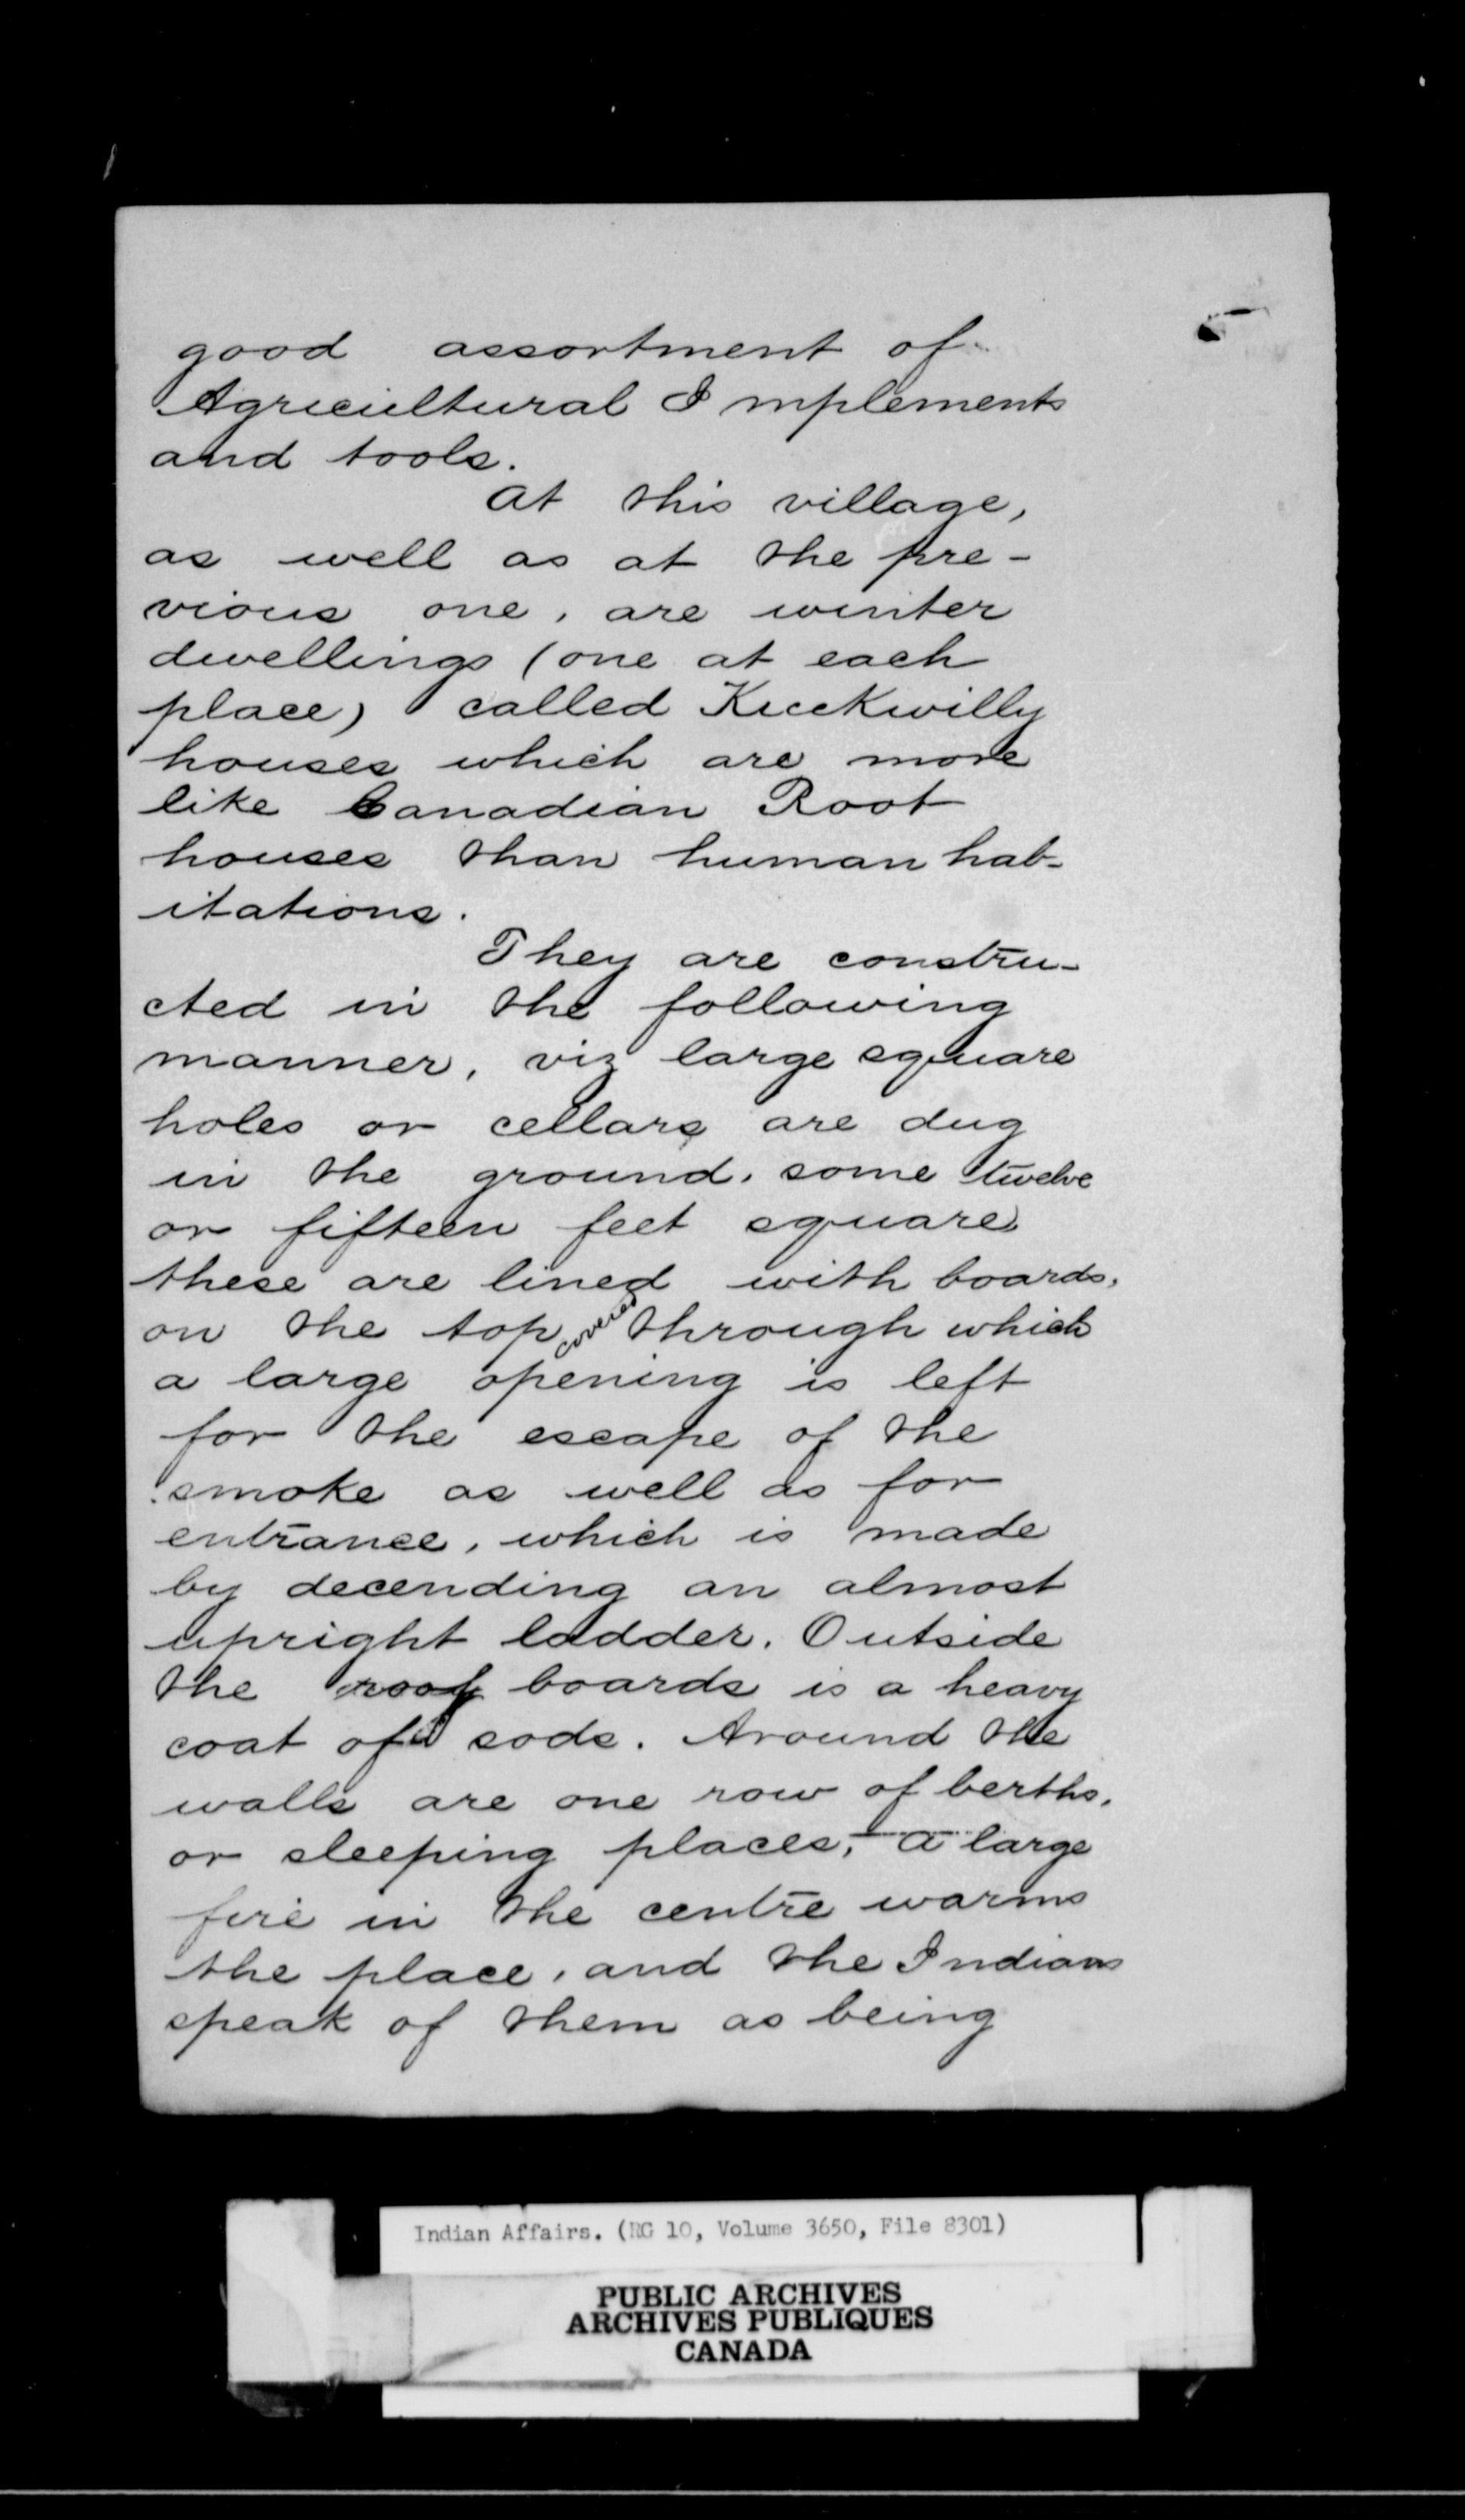 5
good assortment of
Agricultural Implements
and tools.
At this village,
as well as at the pre-
vious one, are winter
dwellings (one at each
place) called Kuckwilly
houses which are more
like Canadian Root
houses than human hab-
itations.
They are constru-
cted in the following
manner, viz large square
holes or cellars are dug
in the ground, some twelve
or fifteen feet square
these are lined with boards,
on the top covered through which
a large opening is left
for the escape of the
smoke as well as for
entrance, which is made
by decending an almost
upright ladder. Outside
the roof boards is a heavy
coat of sods. Around the
walls are one row of berths,
or sleeping places, - a large
fire in the centre warms
the place, and the Indians
speak of them as being
Indian Affairs. (RG 10, Volume 3650, File 8301)
PUBLIC ARCHIVES
ARCHIVES PUBLIQUES
CANADA